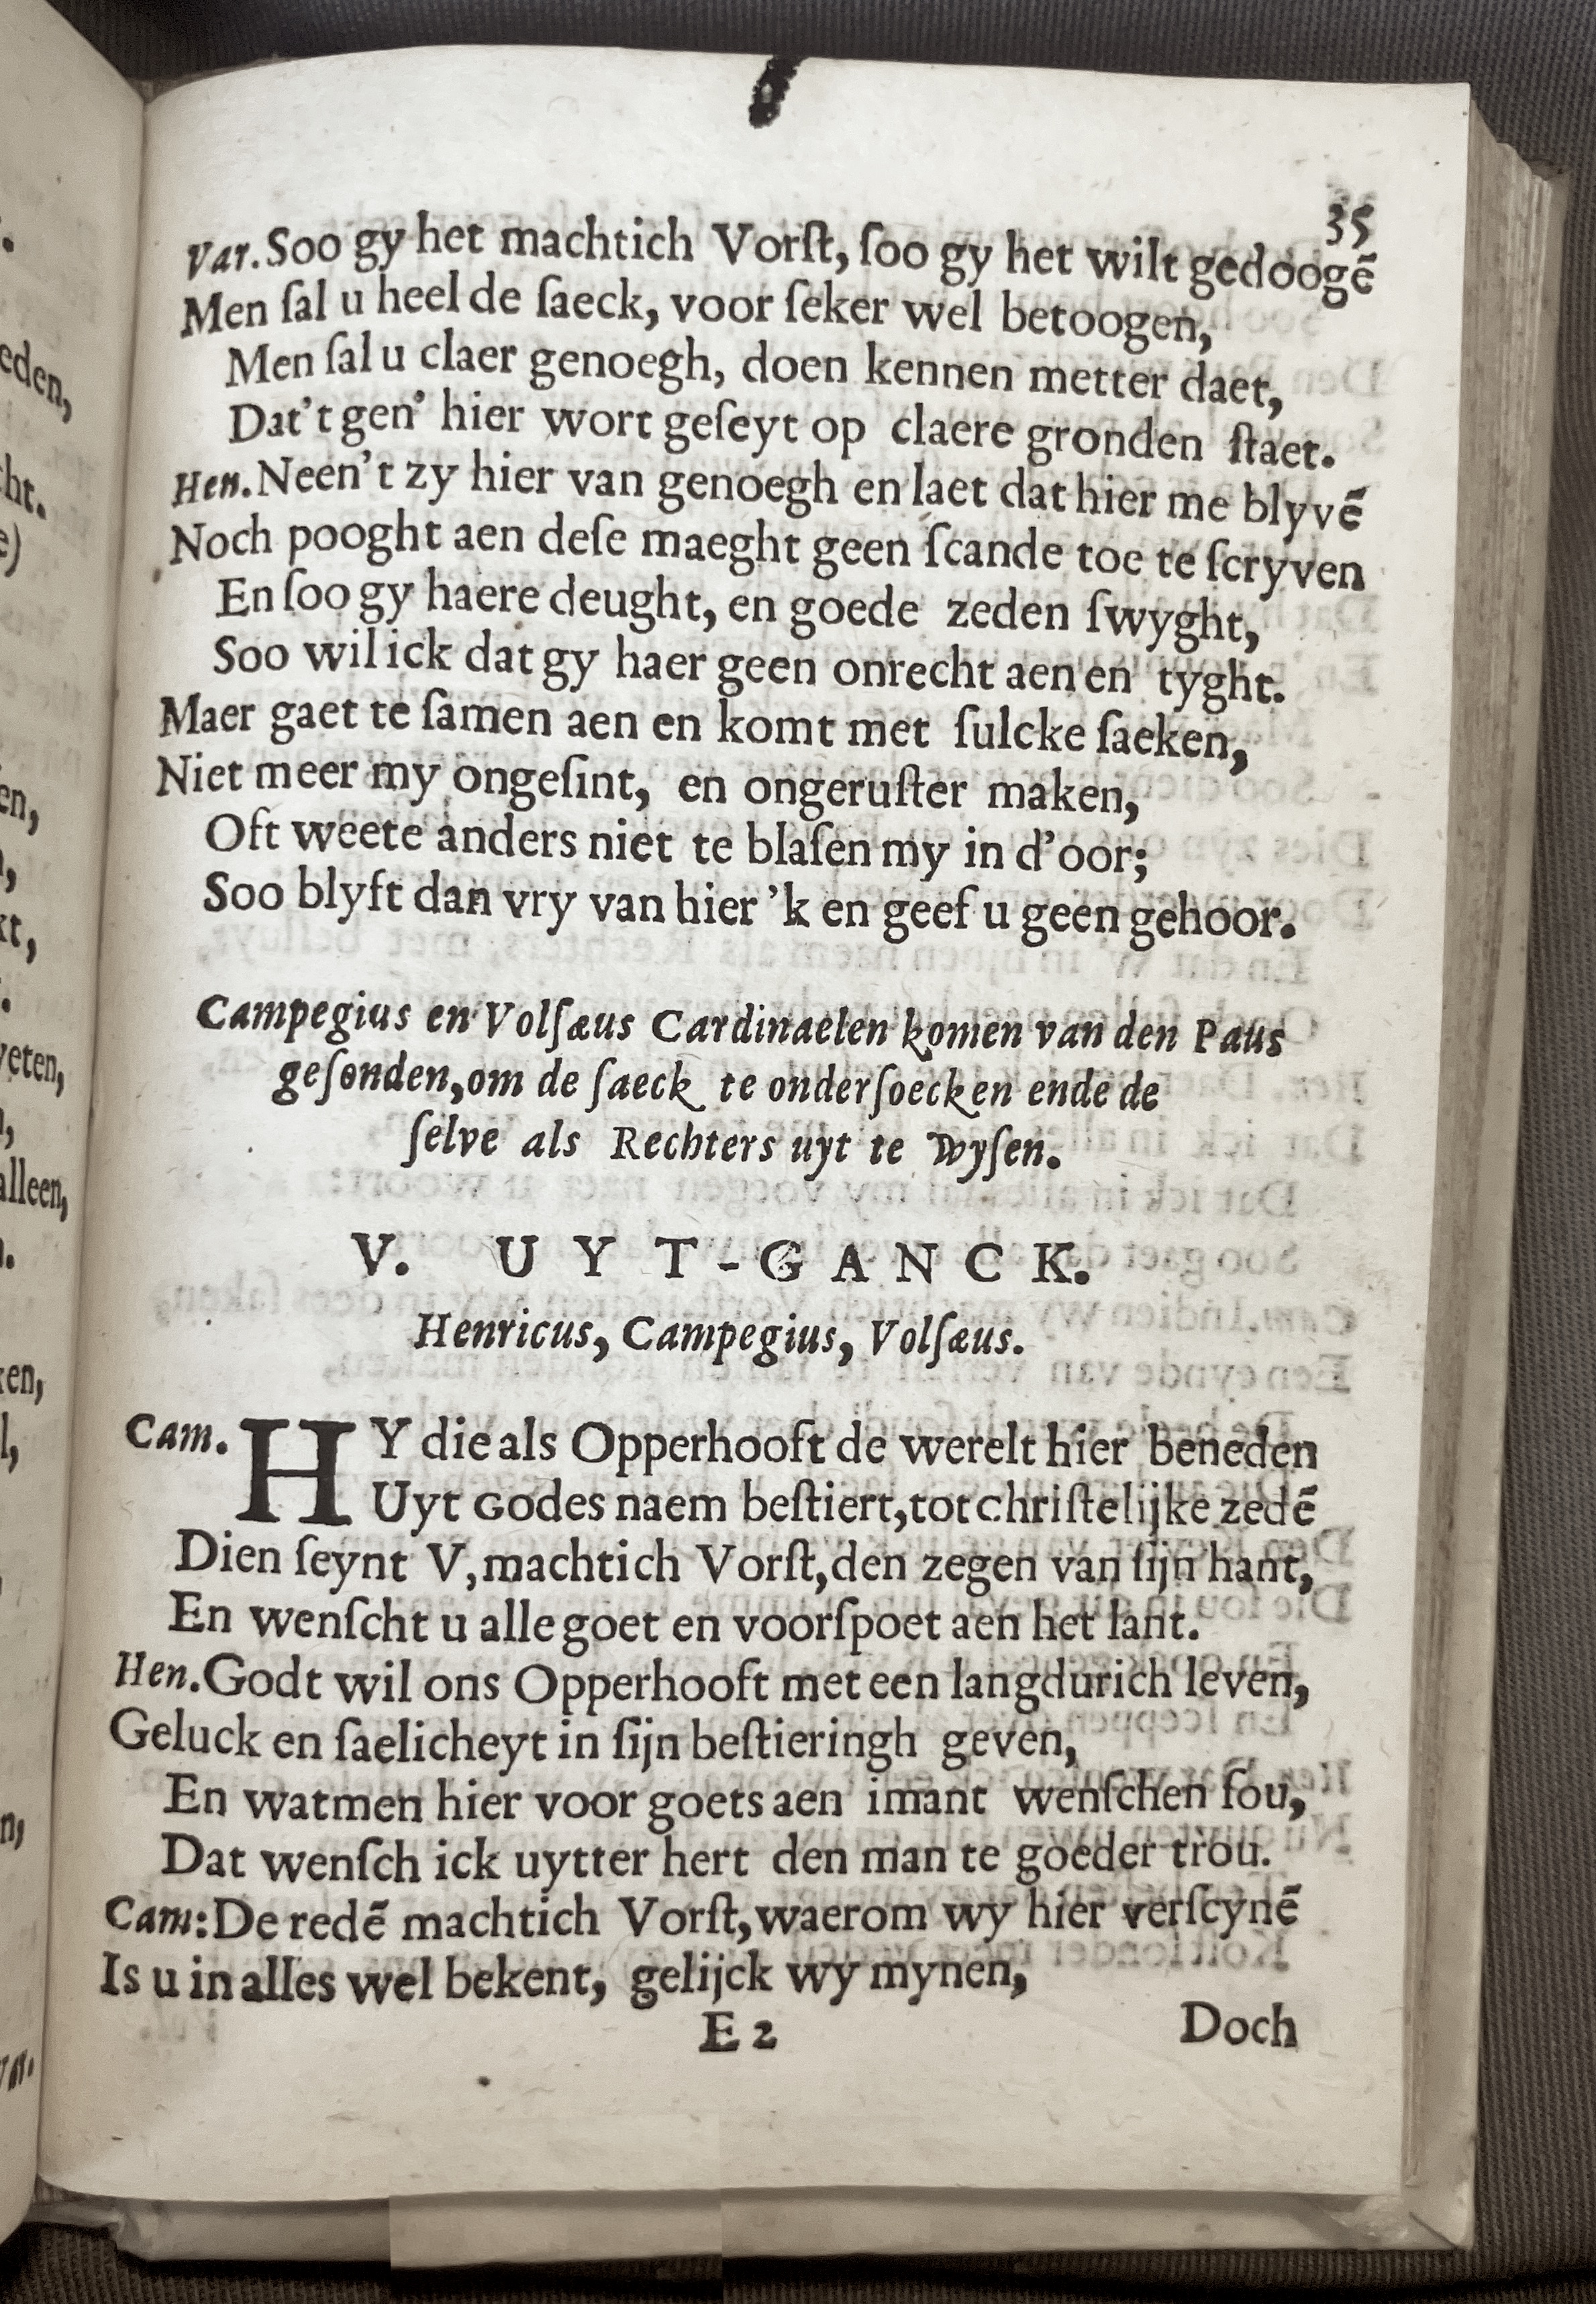 35
Var. Soo gy het machtich Vorſt, ſoo gy het wilt gedoogē
Men ſal u heel de ſaeck, voor ſeker wel betoogen,
Men ſal u claer genoegh, doen kennen metter daet,
Dat't gen' hier wort geſeyt op claere gronden ſtaet.
Hen. Neen't zy hier van genoegh en laet dat hier me blyvē
Noch pooght aen deſe maeght geen ſcande toe te ſcryven
En ſoo gy haere deught, en goede zeden ſwyght,
Soo wil ick dat gy haer geen onrecht aen en tyght.
Maer gaet te ſamen aen en komt met ſulcke ſaeken,
Niet meer my ongeſint, en ongeruſter maken,
Oft weete anders niet te blaſen my in d'oor;
Soo blyft dan vry van hier 'k en geef u geen gehoor.
Campegius en Volſæus Cardinaelen komen van den Paus
geſonden, om de ſaeck te onderſoecken ende de
ſelve als Rechters uyt te wyſen.
V. UYT-GANCK.
Henricus, Campegius, Volſæus.
Cam. HY die als Opperhooft de werelt hier beneden
Uyt Godes naem beſtiert, tot chriſtelijke zedē
Dien ſeynt V, machtich Vorſt, den zegen van ſijn hant,
En wenſcht u alle goet en voorſpoet aen het lant.
Hen. Godt wil ons Opperhooft met een langdurich leven,
Geluck en ſaelicheyt in ſijn beſtieringh geven,
En watmen hier voor goets aen imant wenſchen ſou,
Dat wenſch ick uytter hert den man te goeder trou.
Cam: De redē machtich Vorſt, waerom wy hier verſcynē
Is u in alles wel bekent, gelijck wy mynen,
E 2 Doch